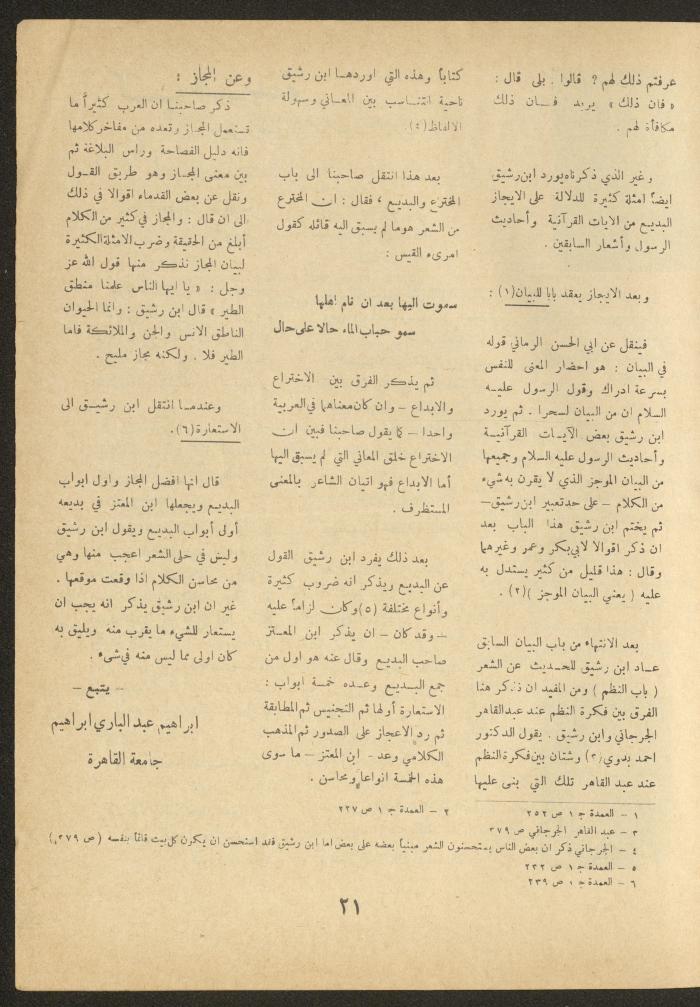 عرفتم ذلك لهم ؟ قالوا . بلى قال :
« فان ذلك » يريد فــان ذلك
مكافأة لهم .
وغير الذي ذكرناه يورد ابن رشيق
ايضاً امثلة كثيرة للدلالة على الايجاز
البديع من الايات القرآنية وأحاديث
الرسول وأشعار السابقين .
وبعد الايجاز يعقد بابا للبيان(١) :
فينقل عن ابي الحسن الرماني قوله
في البيان : هو احضار المعنى للنفس
بسرعة ادراك وقول الرسول عليــه
السلام ان من البيان لسحرا . ثم يورد
ابن رشيق بعض الآيــات القرآنيــة
وأحاديث الرسول عليه السلام وجميعها
من البيان الموجز الذي لا يقرن به شيء
من الكلام – على حد تعبير ابن رشيق–
ثم يختم ابن رشيق هذا الباب بعد
ان ذكر اقوالا لابي بكر وعمر وغيرهما
وقال : هذا قليل من كثير يستدل به
عليه ( يعني البيان الموجز )(٢) .
بعد الانتهاء من باب البيان السابق
عــاد ابن رشيق للحــديث عن الشعر
( باب النظم ) ومن المفيد ان نذكر هنا
الفرق بين فكرة النظم عند عبدالقاهر
الجرجاني وابن رشيق . يقول الدكتور
احمد بدوي(٣) وشتان بين فكرة النظم
عند عبد القاهر تلك التي بنى عليها
كتاباً وهذه التي اوردهــا ابن رشيق
ناحية التنــاسب بين المعــاني وسهولة
الالفاظ(٤).
بعد هذا انتقل صاحبنا الى باب
المخترع والبديــع ، فقال : ان المخترع
من الشعر هوما لم يسبق اليه قائله كقول
امرىء القيس :
سموت اليها بعد ان نام اهلها
سمو حباب الماء حالا على حال
ثم يذكر الفرق بين الاختراع
والابداع – وان كان معناهما في العربية
واحدا – كما يقول صاحبنا فبين ان
الاختراع خلق المعاني التي لم يسبق اليها
أما الابداع فهو اتيان الشاعر بالمعنى
المستظرف .
بعد ذلك يفرد ابن رشيق القول
عن البديع ويذكر انه ضروب كثيرة
وأنواع مختلفة (٥) وكان لزاماً عليه
– وقد كان – ان يذكر ابن المعــتز
صاحب البديع وقال عنه هو اول من
جمع البــديــع وعــده خمسة ابواب :
الاستعارة أولها ثم التجنيس ثم المطابقة
ثم رد الاعجاز على الصدور ثم المذهب
الكلامي وعد – ابن المعتز – ما سوى
هذه الخمسة انواعا ومحاسن .
وعن المجاز :
ذكر صاحبنا ان العرب كثيراً ما
تستعمل المجــاز وتعده من مفاخر كلامها
فانه دليل الفصاحة وراس البلاغة ثم
بين معنى المجــاز وهو طريق القــول
ونقل عن بعض القدماء اقوالا في ذلك
الى ان قال : والمجاز في كثير من الكلام
أبلغ من الحقيقة وضرب الامثلة الكثيرة
لبيان المجاز نذكر منها قول الله عز
وجل : « يا ايها الناس علمنا منطق
الطير » قال ابن رشيق : وانما الحيوان
الناطق الانس والجن والملائكة فاما
الطير فلا . ولكنه مجاز مليح .
وعندمــا انتقل ابن رشيــق الى
الاستعارة(٦).
قال انها افضل المجاز واول ابواب
البديــع ويجعلها ابن المعتز في بديعه
أولى أبواب البديــع ويقول ابن رشيق
وليس في حلى الشعر اعجب منها وهي
من محاسن الكلام اذا وقعت موقعها .
غير ان ابن رشيق يذكر انه يجب ان
يستعار للشيء ما يقرب منه ويليق به
كان اولى مما ليس منه في شيء .
– يتبع –
ابراهيم عبد الباري ابراهيم
جامعة القاهرة
١ – العمدة ج ١ ص ٢٥٢
٢ – العمدة ج ١ ص ٢٢٧
٣ – عبد القاهر الجرجاني ص ٣٧٩
٤ – الجرجاني ذكر ان بعض الناس يستحسنون الشعر مبنياً بعضه على بعض اما ابن رشيق فقد استحسن ان يكون كل بيت قائماً بنفسه ( ص ٣٧٩ )
٥ – العمدة ج ١ ص ٢٣٢
٦ – العمدة ج ١ ص ٢٣٩
٢١